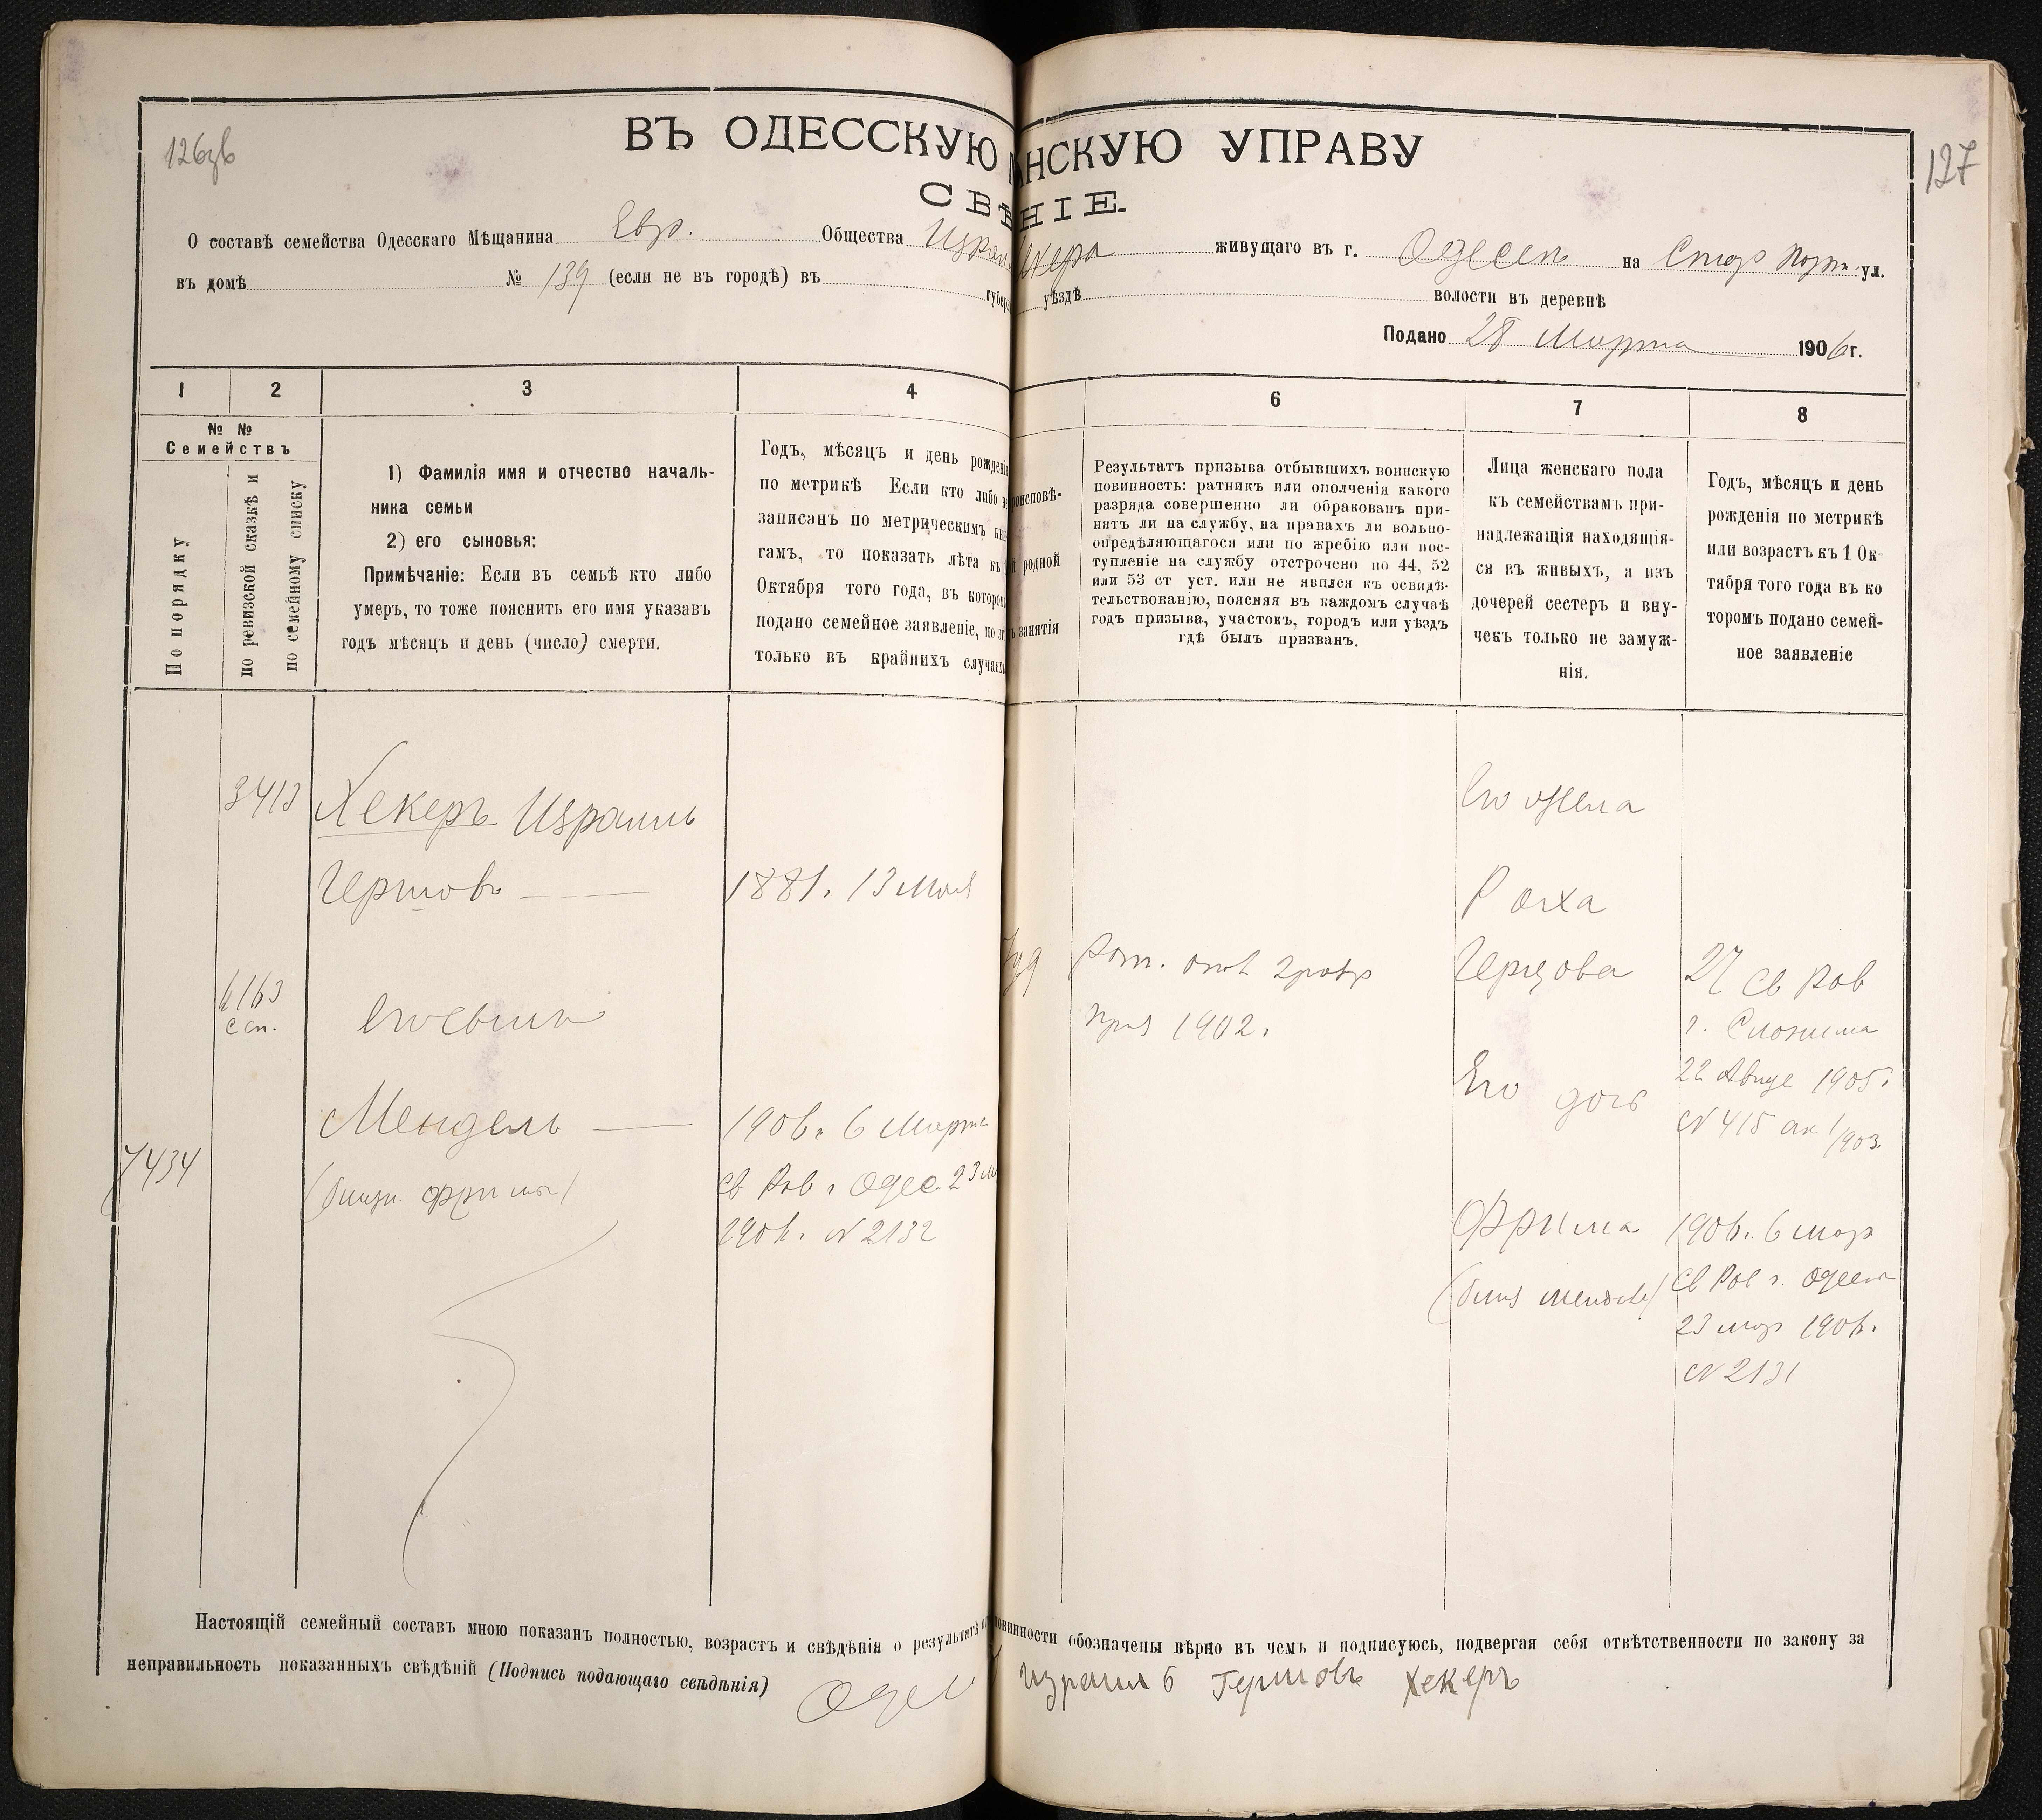 126зв
127
ВЪ ОДЕССКУЮ НСКУЮ УПРАВУ
СВѢ НІЕ.
О составѣ семейства Одесскаго Мѣщанина Евр. Общества Израил Хекера живущаго въ г. Одессѣ на Стар Порт. ул.
въ домѣ № 139 (если не въ городѣ) въ губер уѣздѣ волости въ деревнѣ
Подано 28 Марта 1906 г.
1 2 3 4 6 7 8
№ №
Семействъ
По порядку
по ревизской сказкѣ и
по семейному списку
1) Фамилія имя и отчество началь-
ника семьи
2) его сыновья:
Примѣчаніе: Если въ семьѣ кто либо
умеръ, то тоже пояснить его имя указавъ
годъ мѣсяцъ и день (число) смерти.
Годъ, мѣсяцъ и день рожденія
по метрикѣ Если кто либо не
записанъ по метрическимъ кни-
гамъ, то показать лѣта къ 1
Октября того года, въ которомъ
подано семейное заявленіе, но это
только въ крайнихъ случаяхъ
роисповѣ-
и родной
ъ занятія
Результатъ призыва отбывшихъ воинскую
повинность: ратникъ или ополченія какого
разряда совершенно ли обракованъ при-
нятъ ли на службу, на правахъ ли вольно-
опредѣляющагося или по жребію или пос-
тупленіе на службу отстрочено по 44, 52
или 53 ст уст. или не явился къ освидѣ-
тельствованію, поясняя въ каждомъ случаѣ
годъ призыва, участокъ, городъ или уѣздъ
гдѣ былъ призванъ.
Лица женскаго пола
къ семействамъ при-
надлежащія находящія-
ся въ живыхъ, а изъ
дочерей сестеръ и вну-
чекъ только не замуж-
нія.
Годъ, мѣсяцъ и день
рожденія по метрикѣ
или возрастъ къ 1 Ок-
тября того года въ ко
торомъ подано семей-
ное заявленіе
3413
Хекеръ Израиль
Гершовъ
1881. 13 Мая
6163
с сп.
Его сынъ
Мендель
7434
(близн. Фримы)
1906. 6 Марта
св Рав г Одес. 23 м
1906. № 2132
Іуд
Рат. опол 2 разр
приз 1902.
Его жена
Рахя
Герцова
27 св Рав
г. Слонима
22 Авгус 1905.
№ 415 ак 1/903.
Его дочь
Фрима
(близ Менделя)
1906. 6 мар
св Рав г. Одессы
23 мар 1906.
№ 2131
Настоящій семейный составъ мною показанъ полностью, возрастъ и свѣдѣнія о результатѣ о повинности обозначены вѣрно въ чемъ и подписуюсь, подвергая себя отвѣтственности по закону за
неправильность показанныхъ свѣдѣній (Подпись подающаго свѣдѣнія)
Одес Израиль Гершовъ Хекеръ